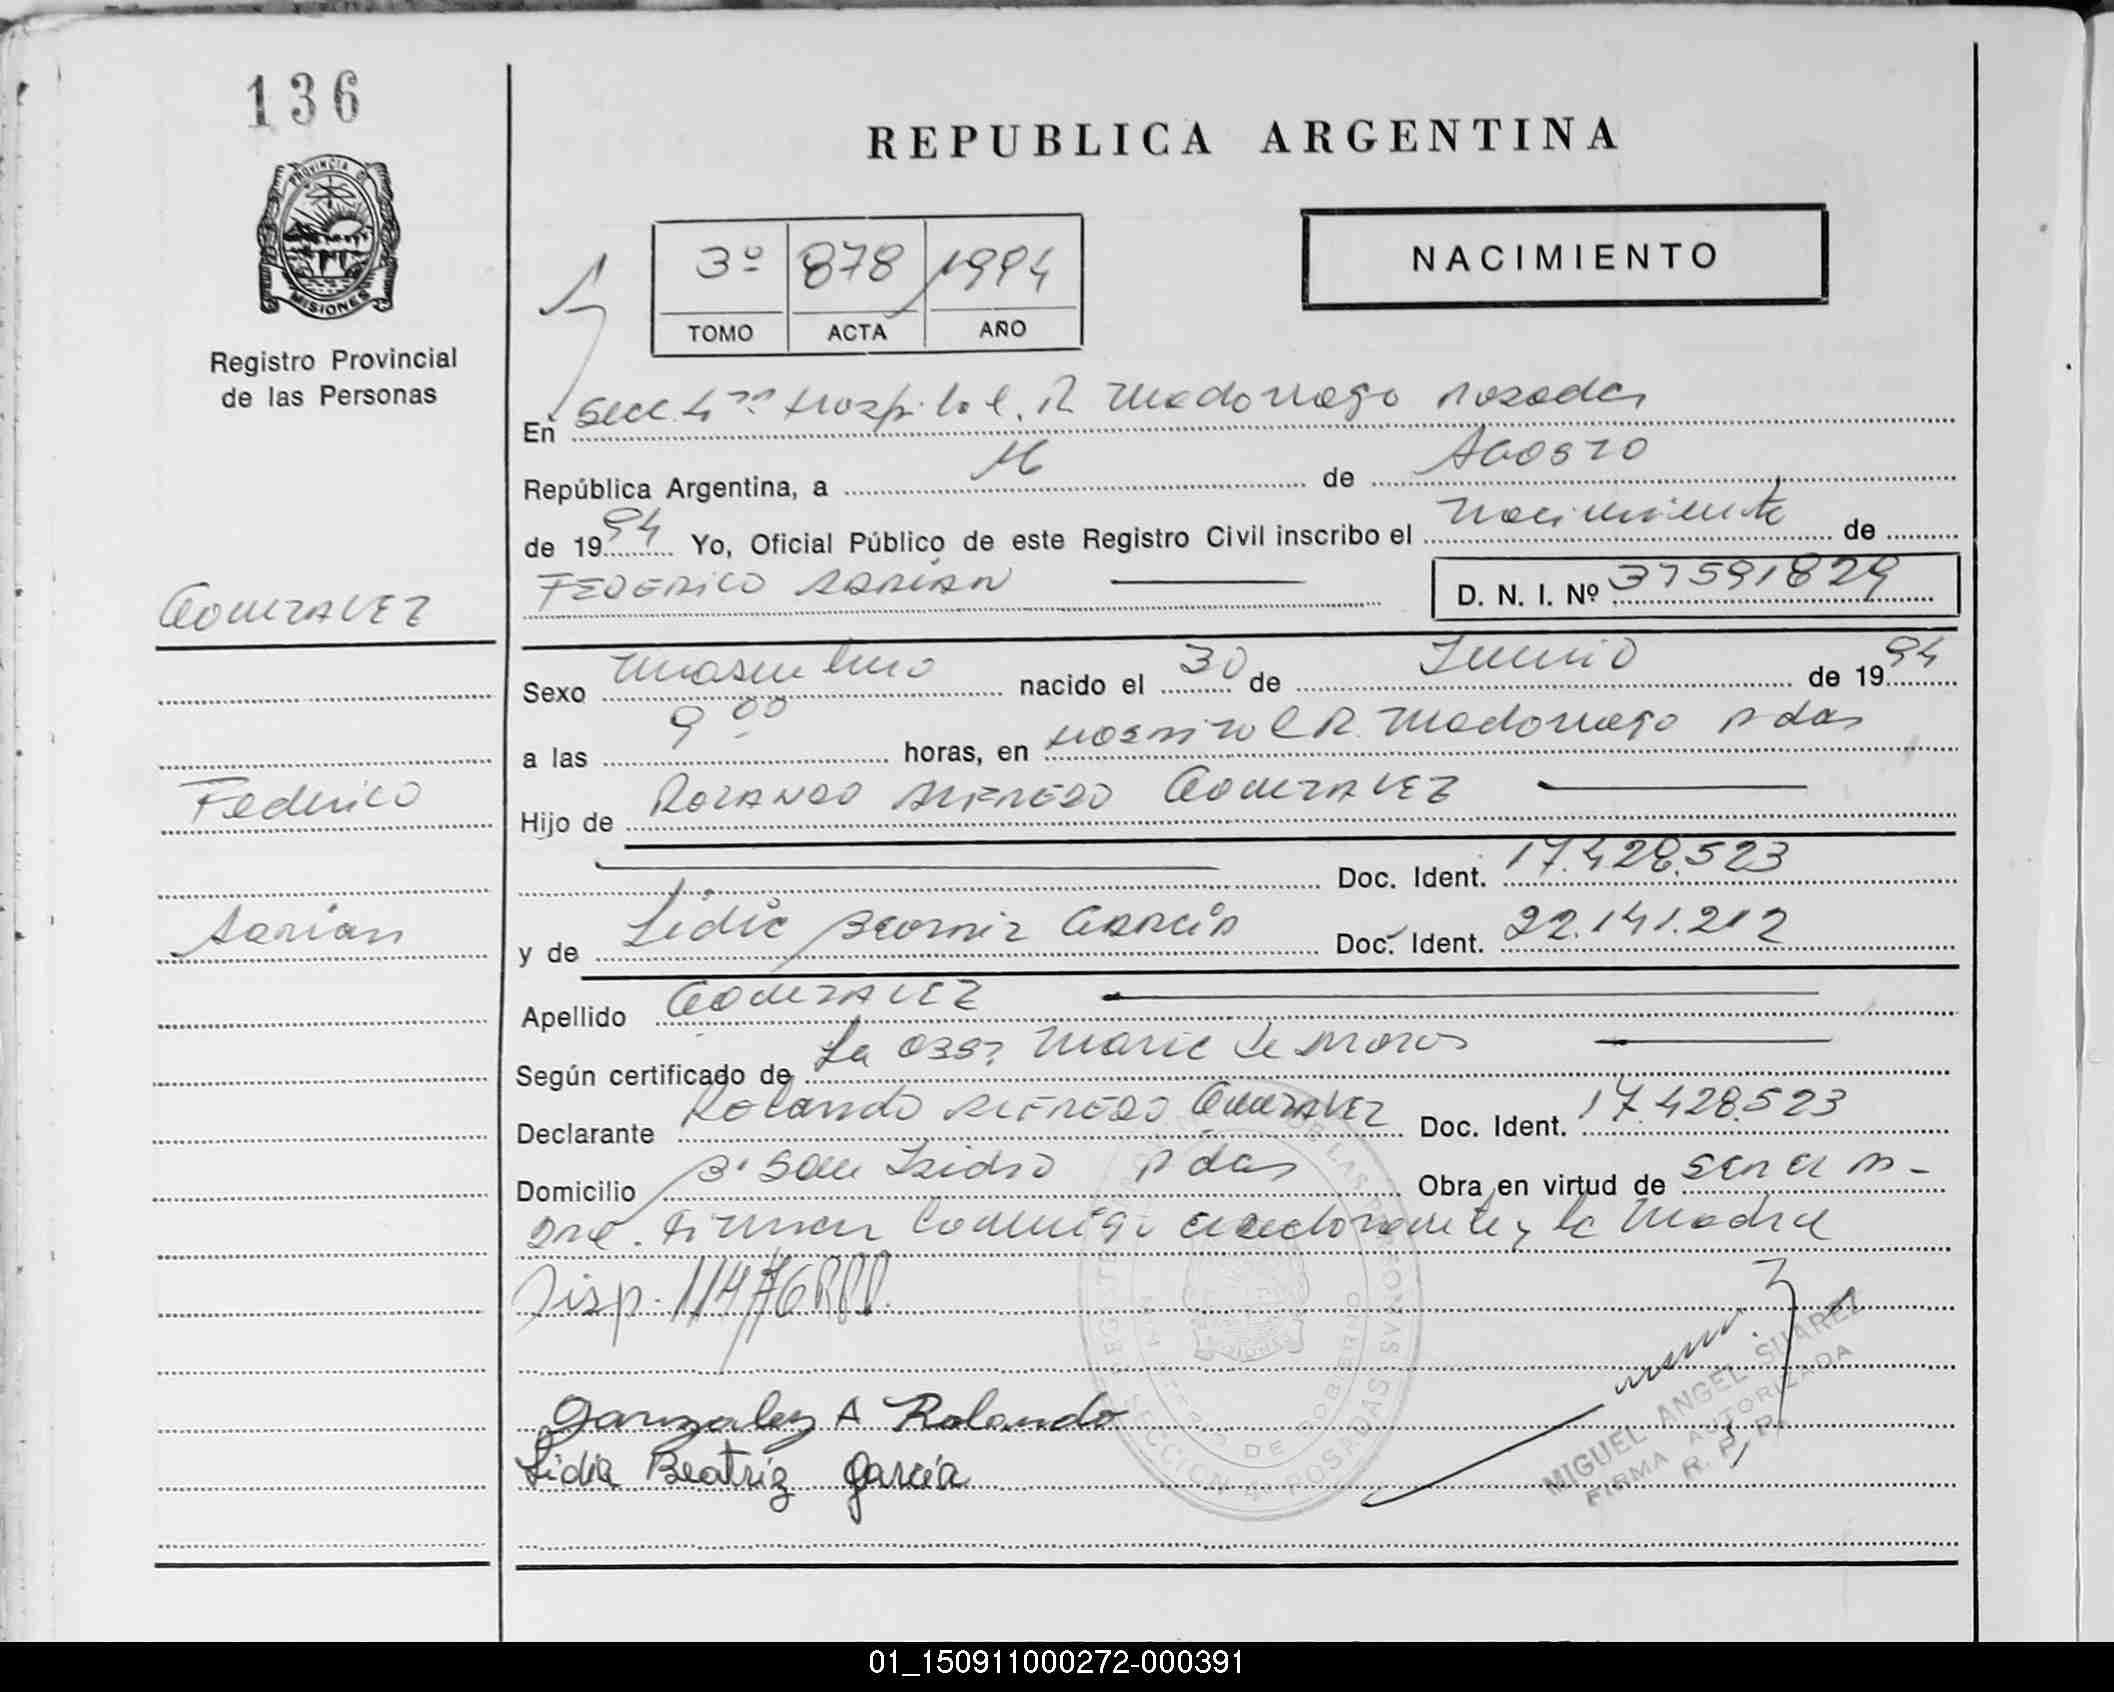 136
REPUBLICA ARGENTINA
PROVINCIA D
MISIONES
Registro Provincial
de las Personas
NACIMIENTO
3º 878 1994
TOMO ACTA AÑO
En Secc. 4ta Hospital R Madorriaga Posadas
República Argentina, a 16 de Agosto
de 1994 Yo, Oficial Público de este Registro Civil inscribo el nacimiento de
GONZALEZ
FEDERICO ADRIAN D. N. I. Nº 37591829
Sexo masculino nacido el 30 de Junio de 1994
a las 9 00 horas, en Hospital R. Madorriaga Pdas
Federico
Hijo de ROLANDO ALFREDO GONZALEZ
Doc. Ident. 17.428.523
Adrian
y de Lidia Beatriz GARCIA Doc. Ident. 22.141.212
Apellido GONZALEZ
Según certificado de La Obst. Maria de
Declarante Rolando ALFREDO GONZALEZ Doc. Ident. 17.428.523
Domicilio Bº San Isidro Pdas Obra en virtud de ser el pa-
dre. Firman conmigo el declarante y la Madre
Disp. 114/76 RPP.
Gonzalez A Rolando
Lidia Beatriz Garcia
MIGUEL ANGEL SUAREZ
FIRMA AUTORIZADA
R. P. P.
SECCION 4ª POSADAS
01_150911000272-000391